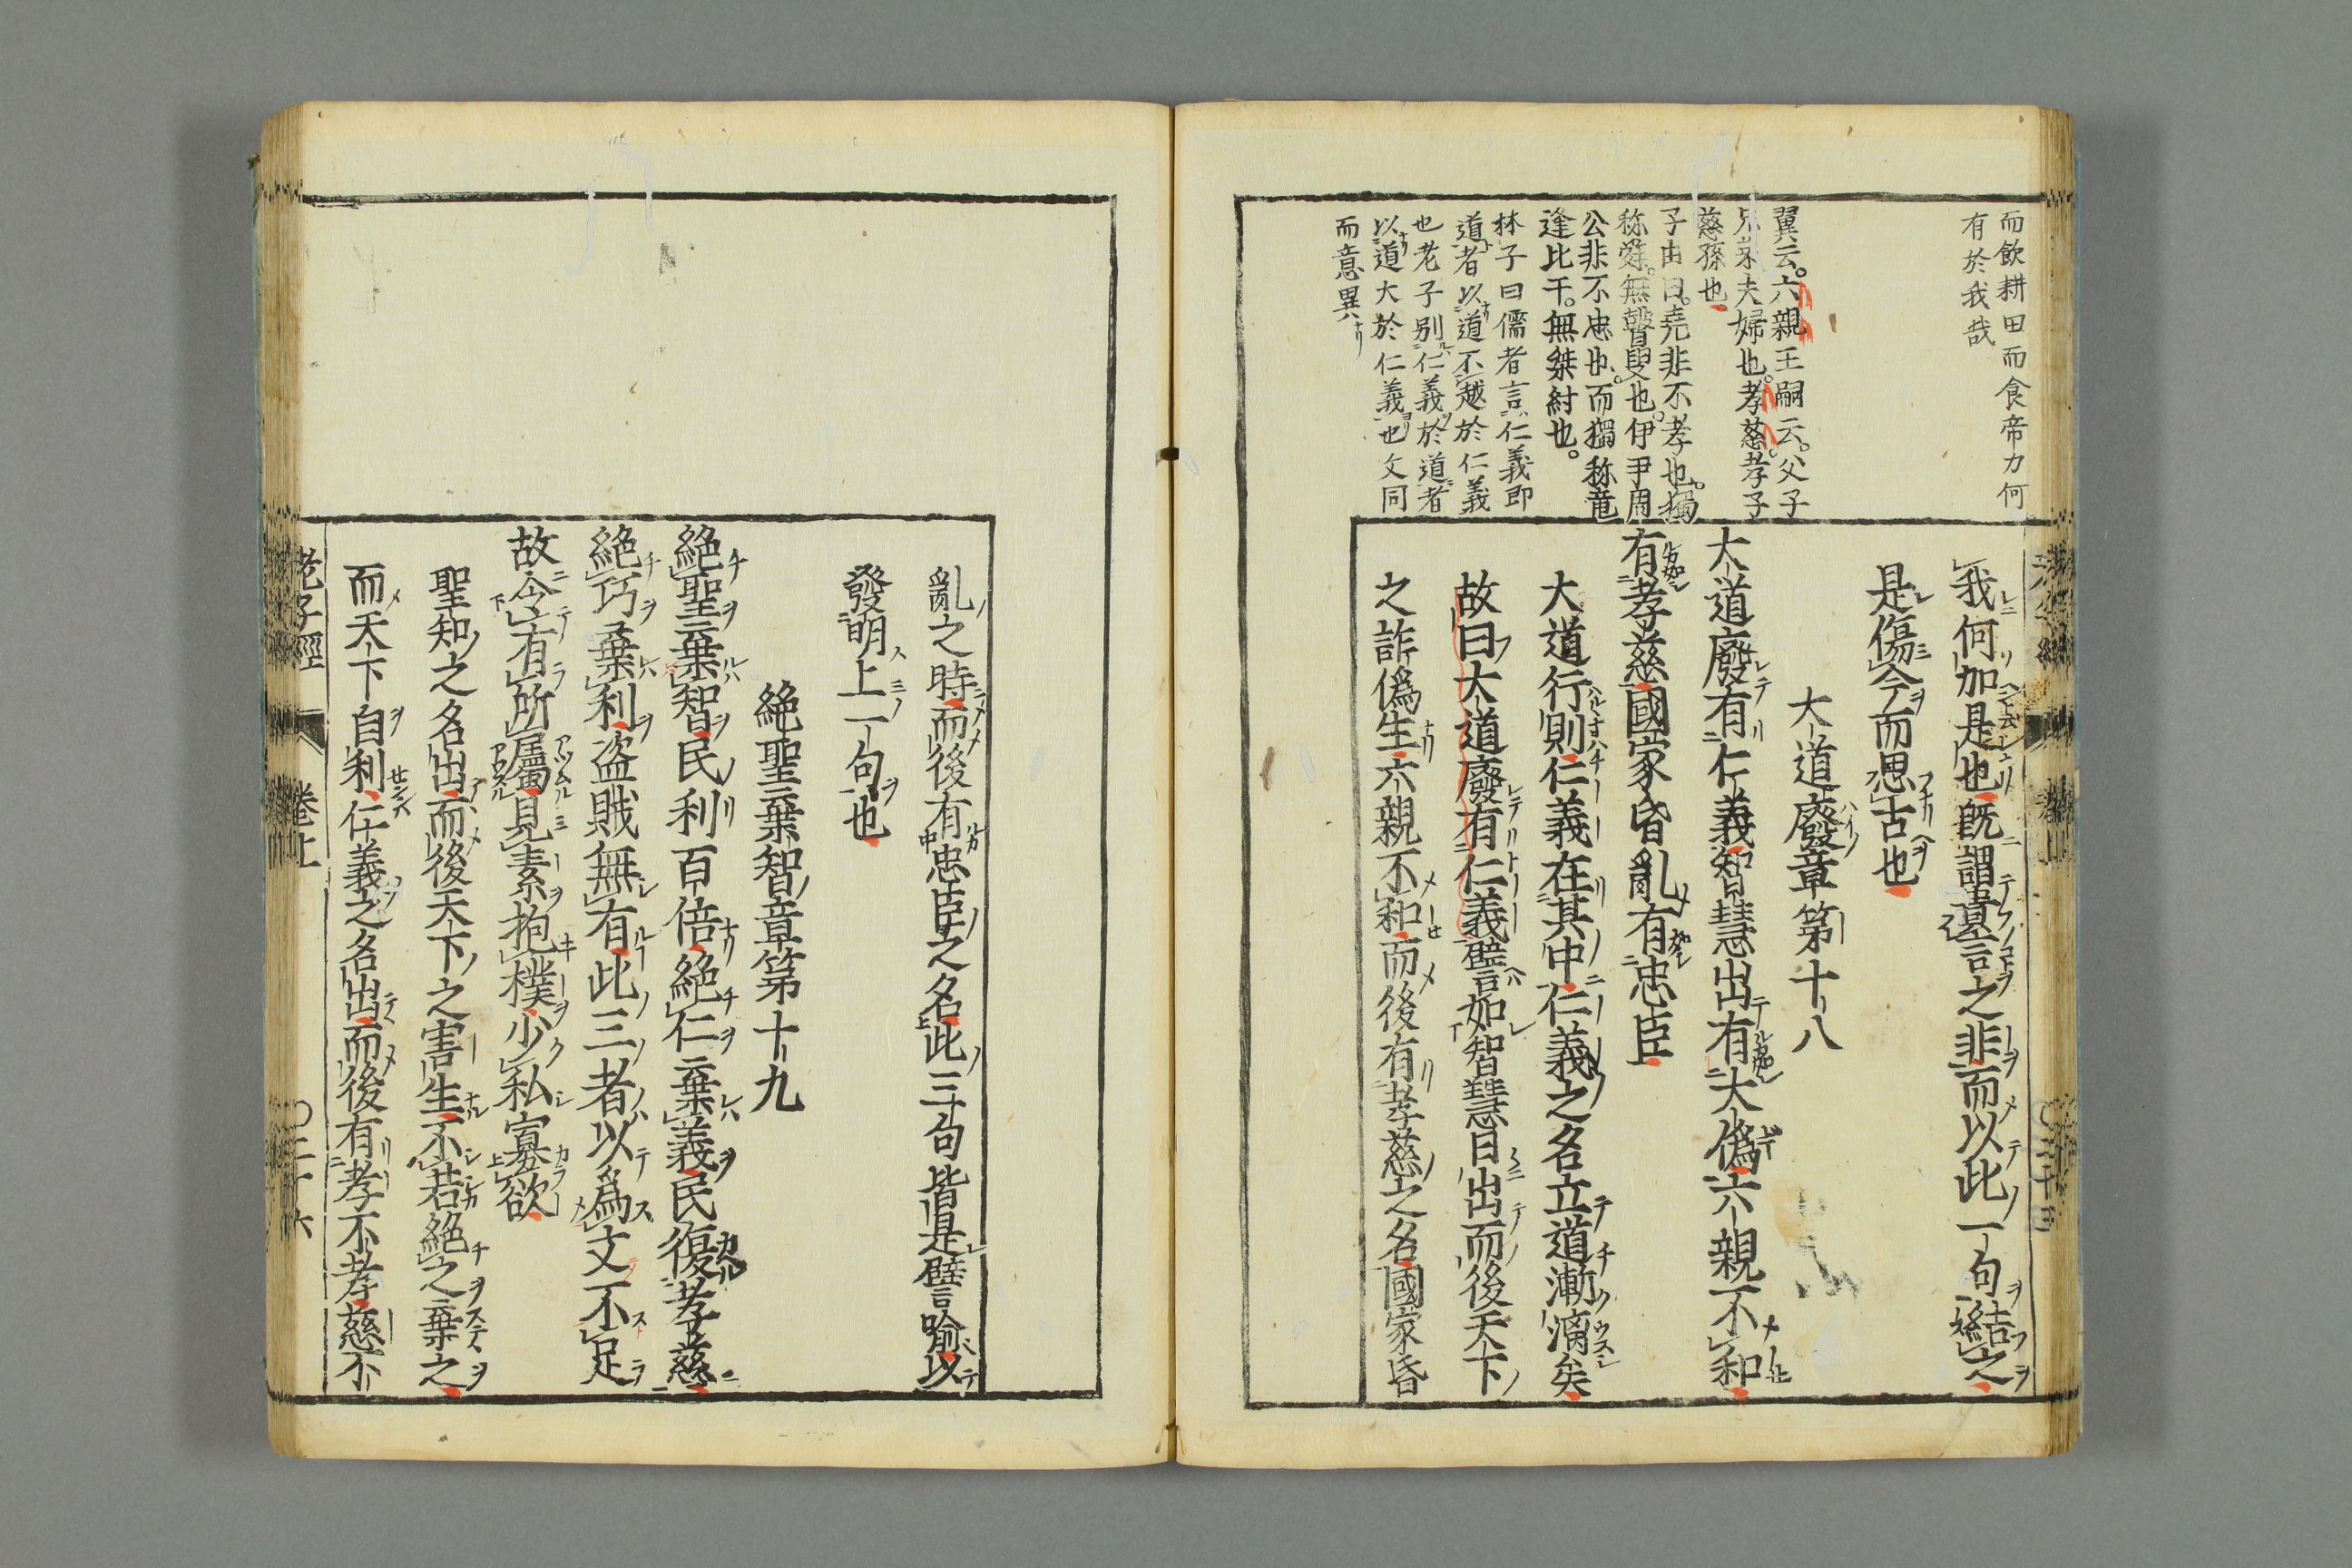 而飲耕田而食帝力何
有於我哉
翼云六親王嗣云父子
兄弟夫婦也孝慈孝子
慈孫也
子由曰堯非不孝也獨
称舜無瞽叟也伊尹周
公非不忠也而獨称竜
逢比干無桀紂也
林子曰儒者言仁義即
道者以道不越於仁義
也老子別仁義於道者
以道大於仁義也文同
而意異
我何加是也既謂畫言之非而以此一句結之
是傷今而思古也
大道廢章第十八
大道廢有仁義智慧出有大偽六親不和
有孝慈國家昏亂有忠臣
大道行則仁義在其中仁義之名立道漸漓矣
故曰大道廢有仁義譬如智慧日出而後天下
之詐偽生六親不和而後有孝慈之名國家昏
亂之時而後有忠臣之名此三句皆是譬喻以
發明上一句也
絕聖棄智章第十九
絕聖棄智民利百倍絕仁棄義民復孝慈
絕巧棄利盗賊無有此三者以爲文不足
故令有所屬見素抱樸少私寡欲
聖知之名出而後天下之害生不若絕之棄之
而天下自利仁義之名出而後有孝不孝慈不
老子經 卷上